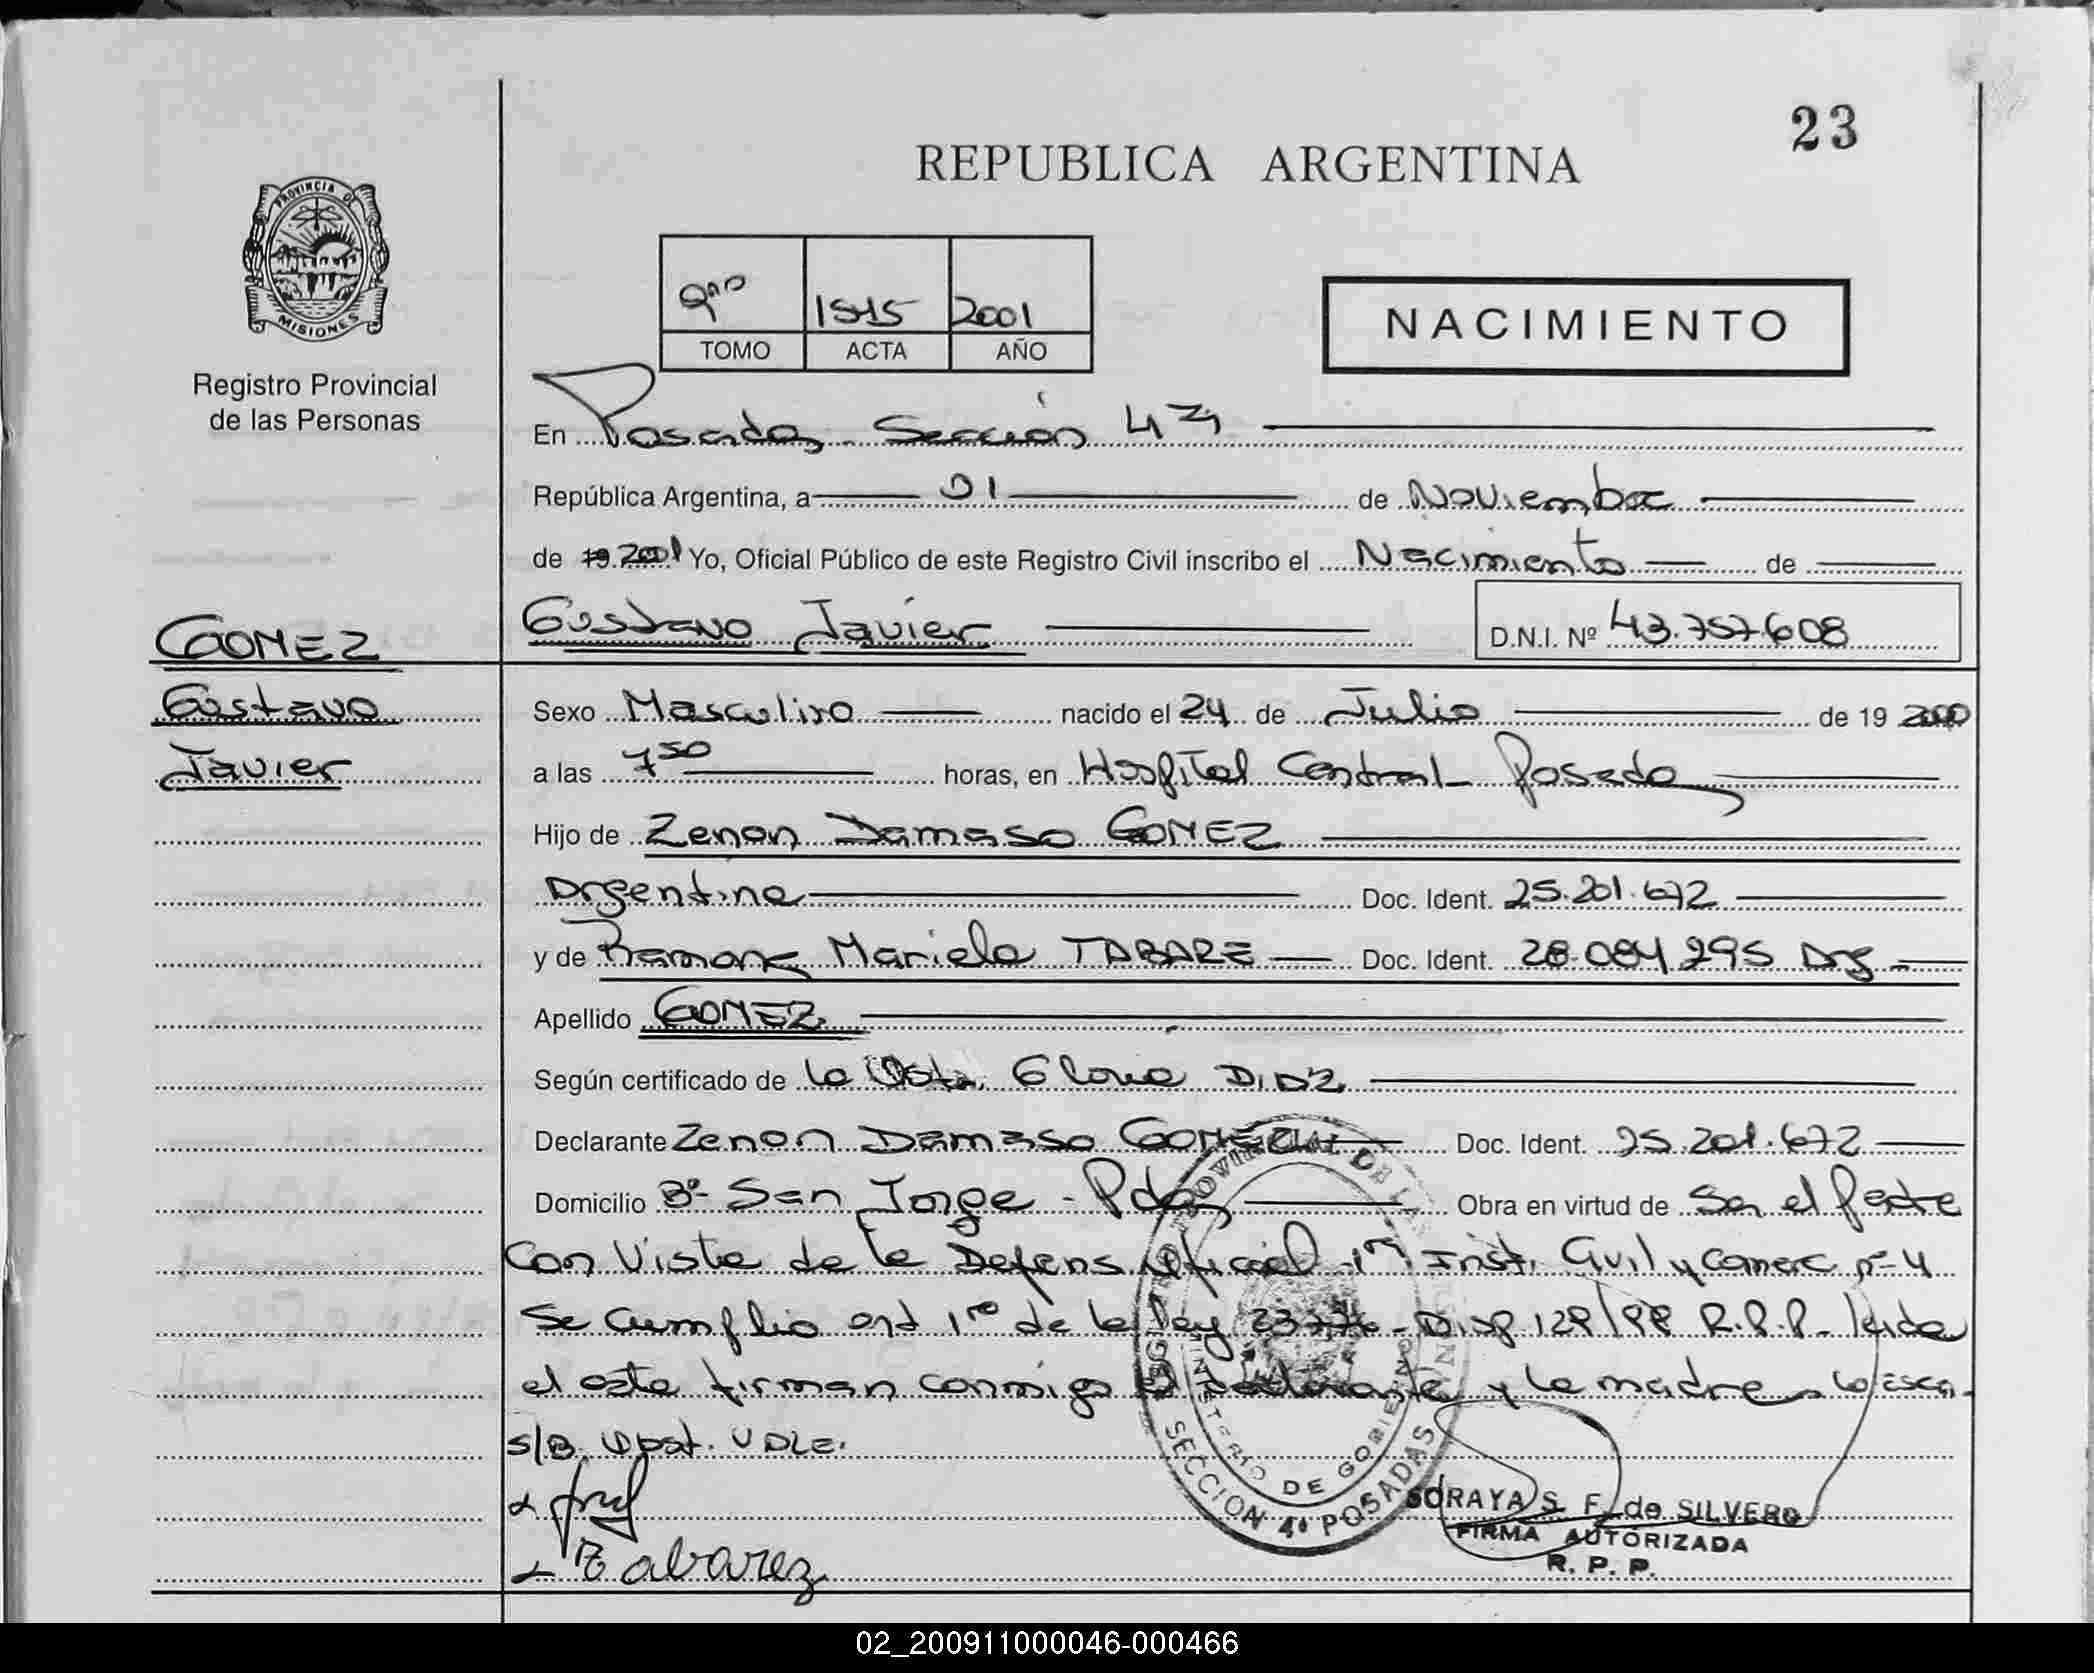 23
REPUBLICA ARGENTINA
PROVINCIA DE
MISIONES
Registro Provincial
de las Personas
9no 1515 2001
TOMO ACTA AÑO
NACIMIENTO
En Posadas Sección 4ta
República Argentina, a 01 de Noviembre
de 19 2001 Yo, Oficial Público de este Registro Civil inscribo el Nacimiento de
Gustavo Javier D.N.I. Nº 43.757.608
GOMEZ
Gustavo
Javier
Sexo Masculino nacido el 24 de Julio de 19 2000
a las 7 50 horas, en Hospital Central Posadas
Hijo de Zenon Damaso GOMEZ
Argentina Doc. Ident. 25.201.672
y de Ramona Mariela TABARE Doc. Ident. 28.084.295 Arg
Apellido GOMEZ
Según certificado de la Obsta. Gloria DIAZ
Declarante Zenon Damaso GOMEZ Doc. Ident. 25.201.672
Domicilio Bº San Jorge - Pdas Obra en virtud de Ser el padre
Con Vista de la Defens Oficial 1ra Inst. Civil y Comerc nº 4
Se Cumplio art 1ro de la ley 23776 - Disp 129/99 R.P.P. - leida
el acta firman conmigo el declarante y la madre
S/B Obst. VALE.
Tabarez
REGISTRO PROVINCIAL DE LAS PERSONAS
MINISTERIO DE GOBIERNO
SECCION 4ª POSADAS
SORAYA S. F. de SILVERO
FIRMA AUTORIZADA
R. P. P.
02_200911000046-000466